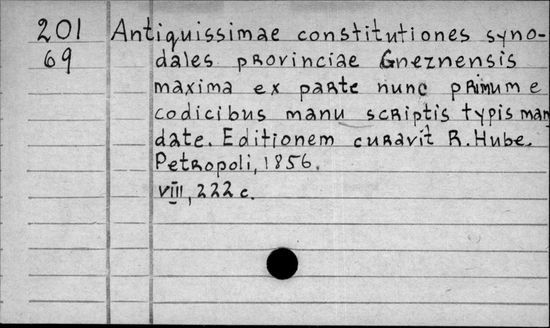 201 Antiquissimae constitutiones syno-
69 dales provinciae Gneznensis
maxima ex parte nunc primum e
codicibus manu scriptis typis man
date. Editionem curavit R. Hube.
Petropoli, 1856.
VIII, 222 c.